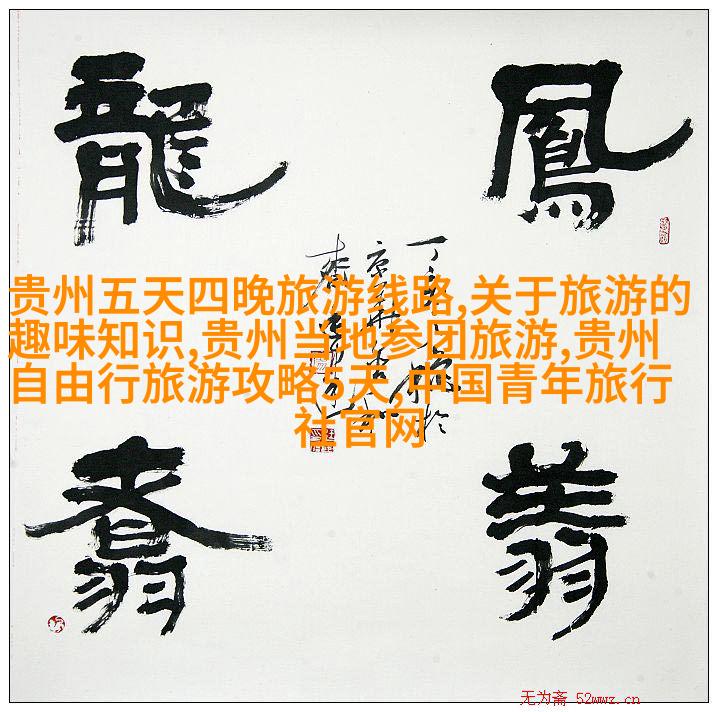 龍
鳳
贵州五天四晚旅游线路,关于旅游的
趣味知识,贵州当地参团旅游,贵州
自由行旅游攻略5天,中国青年旅行
社官网
翥
翔
无为斋 52wwz.cn